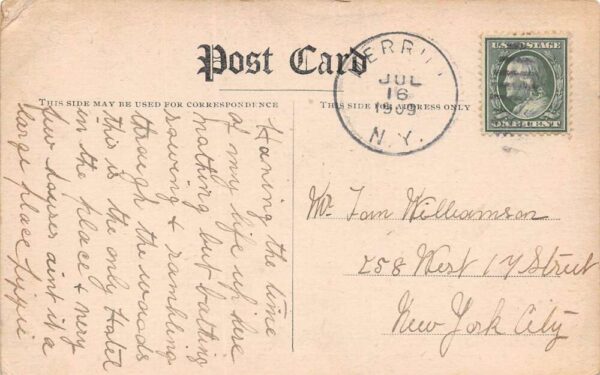 Post Card
THIS SIDE MAY BE USED FOR CORRESPONDENCE
THIS SIDE FOR ADDRESS ONLY
MERRILL
JUL
16
1909
N.Y.
U.S. POSTAGE
ONE CENT
Having the time
of my life up here
nothing but bathing
rowing & rambling
through the woods
this is the only Hotel
in the place & very
few houses aint it a
large place Lizzie
Mr. Tom Williamson
258 West 17 Street
New York City